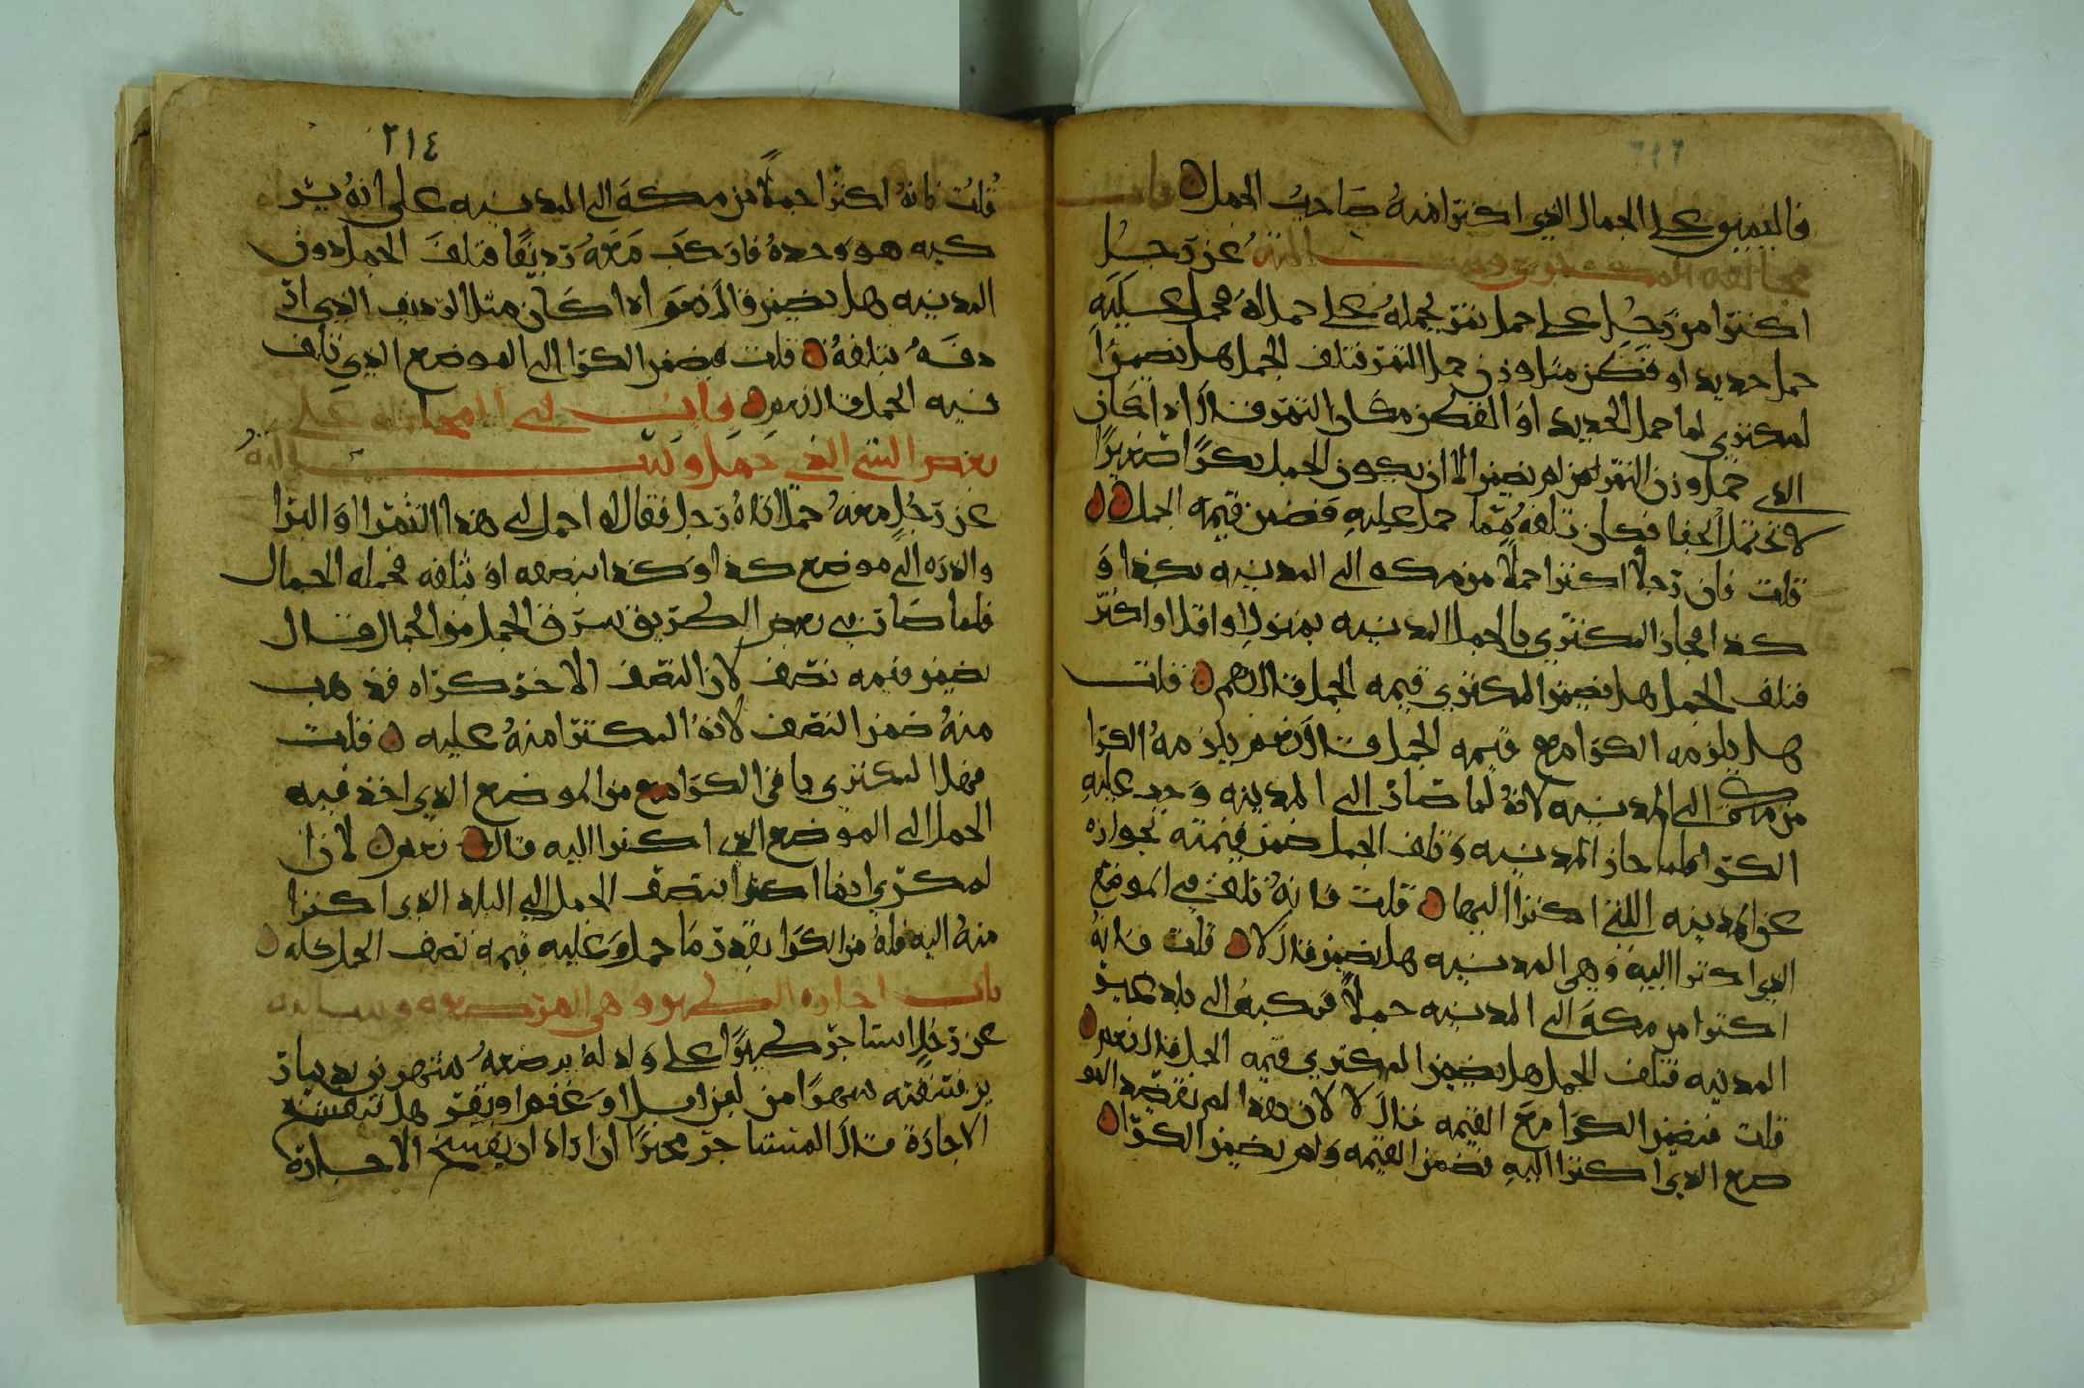 فاليمين على الجمال الذي اكترا منه صاحب الحمل باب
مخالفة المكتري وسالته عن رجل
اكترا من رجل على حمل تمر يحمله على حمل له فحمل عليه
حمل حديد او قطن مثل وزن حمل التمر فتلف الجمل هل يضمن ا
لمكتري لما حمل الحديد او القطن مكان التمر قال اذا كان
الذي حمل وزن التمر لم يضمن الا ان يكون الجمل بكرا صغيرا
لا تحتمل الجفا فكان تلفه مما حمل عليه فضمن قيمه الجمل
قلت فان رجلا اكترا حملا من مكه الى المدينه بكذا و
كذا فجاز المكتري بالجمل المدينه بمنزل او اقل او اكثر
فتلف الجمل هل يضمن المكتري قيمه الجمل قال نعم قلت
هل يلزمه الكرا مع قيمه الجمل قال نعم يلزمه الكرا
من مكة الى المدينه لانه لما صار الى المدينه وجب عليه
الكرا فلما جاز المدينه وتلف الجمل ضمن قيمته بجوازه
عن المدينه اللتي اكترا اليها قلت فانه تلف في الموضع
الذي اكترا اليه وهي المدينه هل يضمن قال لا قلت فانه
اكترا من مكة الى المدينه حملا فركبه الى بلد غير
المدينه فتلف الجمل هل يضمن المكتري قيمه الجمل قال نعم
قلت فيضمن الكرا مع القيمه قال لا لان هذا لم يقصد المو
ضع الذي اكترا اليه فضمن القيمه ولم يضمن الكرا
٢١٤
قلت فانه اكترا جملا من مكة الى المدينه على انه ير
كبه هو وحده فاركب معه رديفا فتلف الجمل دون
المدينه هل يضمن قال نعم اذا كان مثل الرديف الذي ار
دفه يتلفه قلت فيضمن الكرا الى الموضع الذي تلف
فيه الجمل قال نعم باب في المحاملة على
بعض الشي الذي حمل وسالته
عن رجل معه جمل اتاه رجل فقال له احمل لي هذا التمر او البر
والذره الى موضع كذا وكذا بنصفه او بثلثه فحمله الجمال
فلما صار في بعض الطريق سرق الحمل من الجمال قال
يضمن قيمه نصف لان النصف الاخر كراه قد ذهب
منه ضمن النصف لانه المكترا منه عليه قلت
فهذا المكتري باقي الكرا من الموضع الذي اخذ فيه
الحمل الى الموضع الذي اكترا اليه قال نعم لان ا
لمكري انما اكرا بنصف الحمل الى البلد الذي اكترا
منه اليه فله من الكرا بقدر ما حمل وعليه قيمه نصف الحمل كله
باب اجاره الظهور وهي المرضعه وسالته
عن رجل استاجر ظهرا على ولد له يرضعه شهرين بدينار
ير فسقته شهرا من لبن ابل او غنم او بقر هل تنفسخ
الاجارة قال المستاجر مخير ان اراد ان يفسخ الاجارة